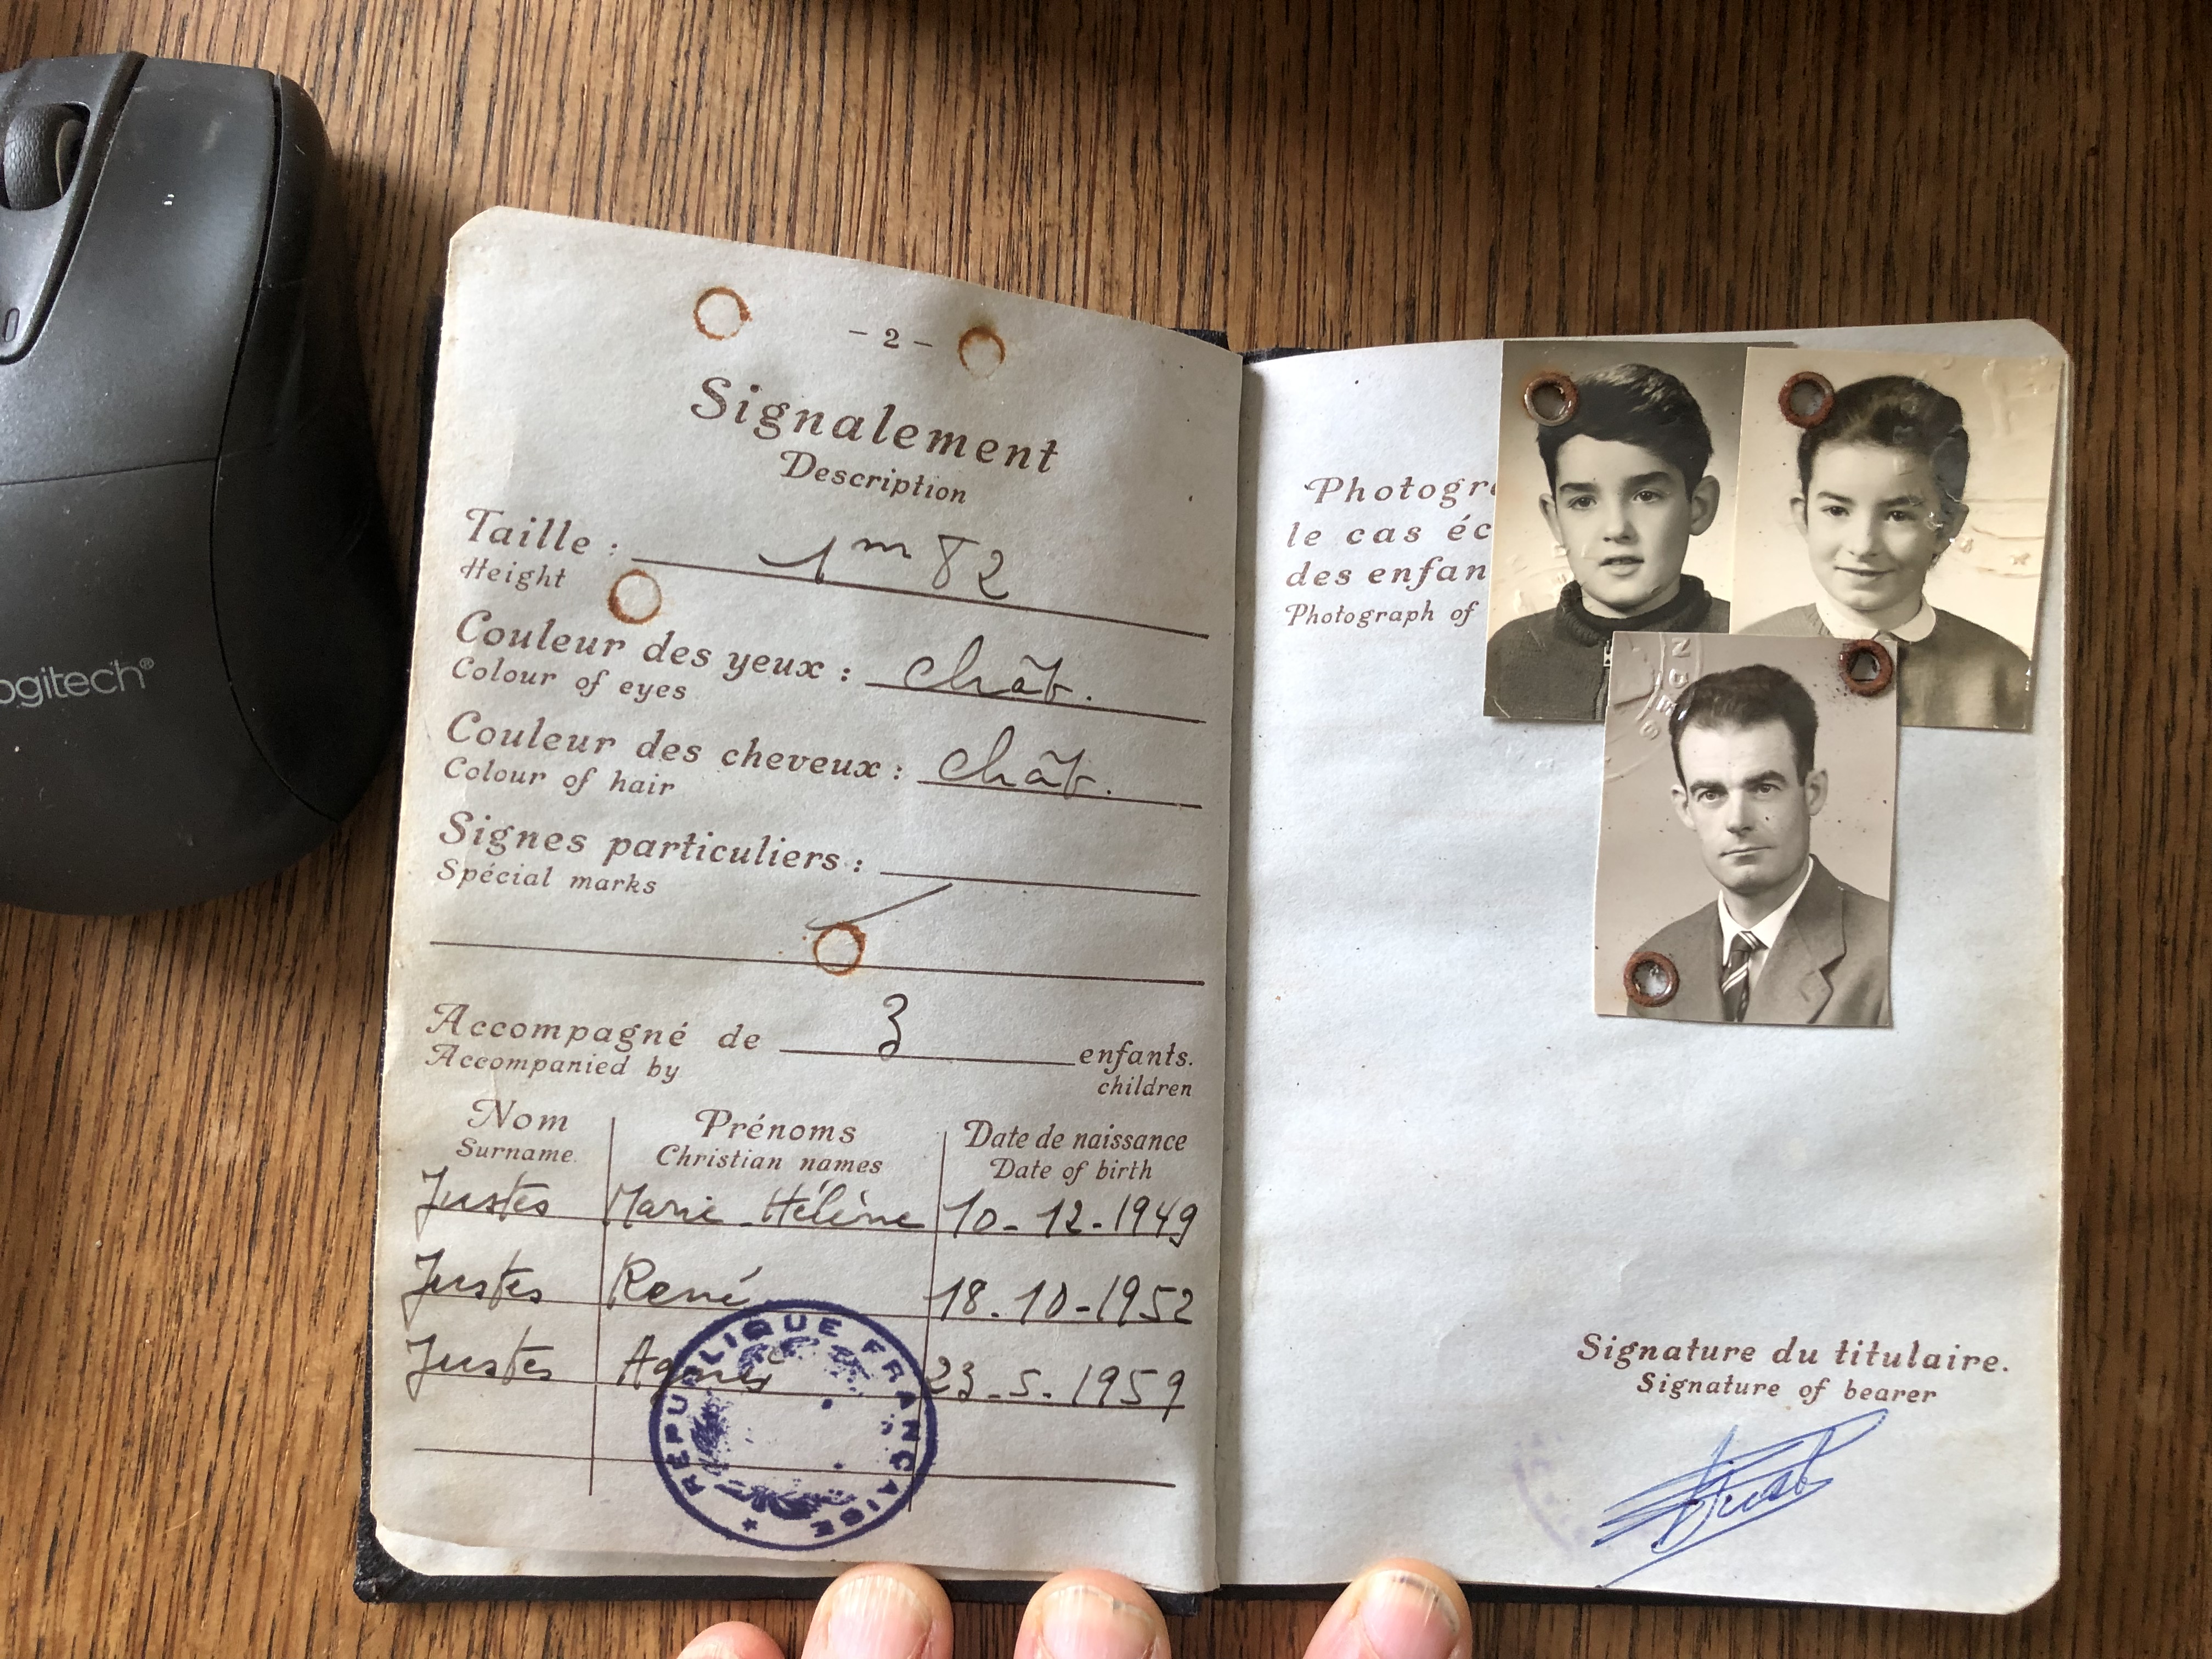 ogitech®
- 2 -
Signalement
Description
Taille : 1m 82
Height
Couleur des yeux : chât.
Colour of eyes
Couleur des cheveux : chât.
Colour of hair
Signes particuliers :
Spécial marks
Accompagné de 3 enfants.
Accompanied by children
Nom Prénoms Date de naissance
Surname Christian names Date of birth
Justes Marie-Hélène 10-12-1949
Justes René 18.10-1952
Justes Agnès 23.5.1959
RÉPUBLIQUE FRANÇAISE
Photogr
le cas éc
des enfan
Photograph of
Signature du titulaire.
Signature of bearer